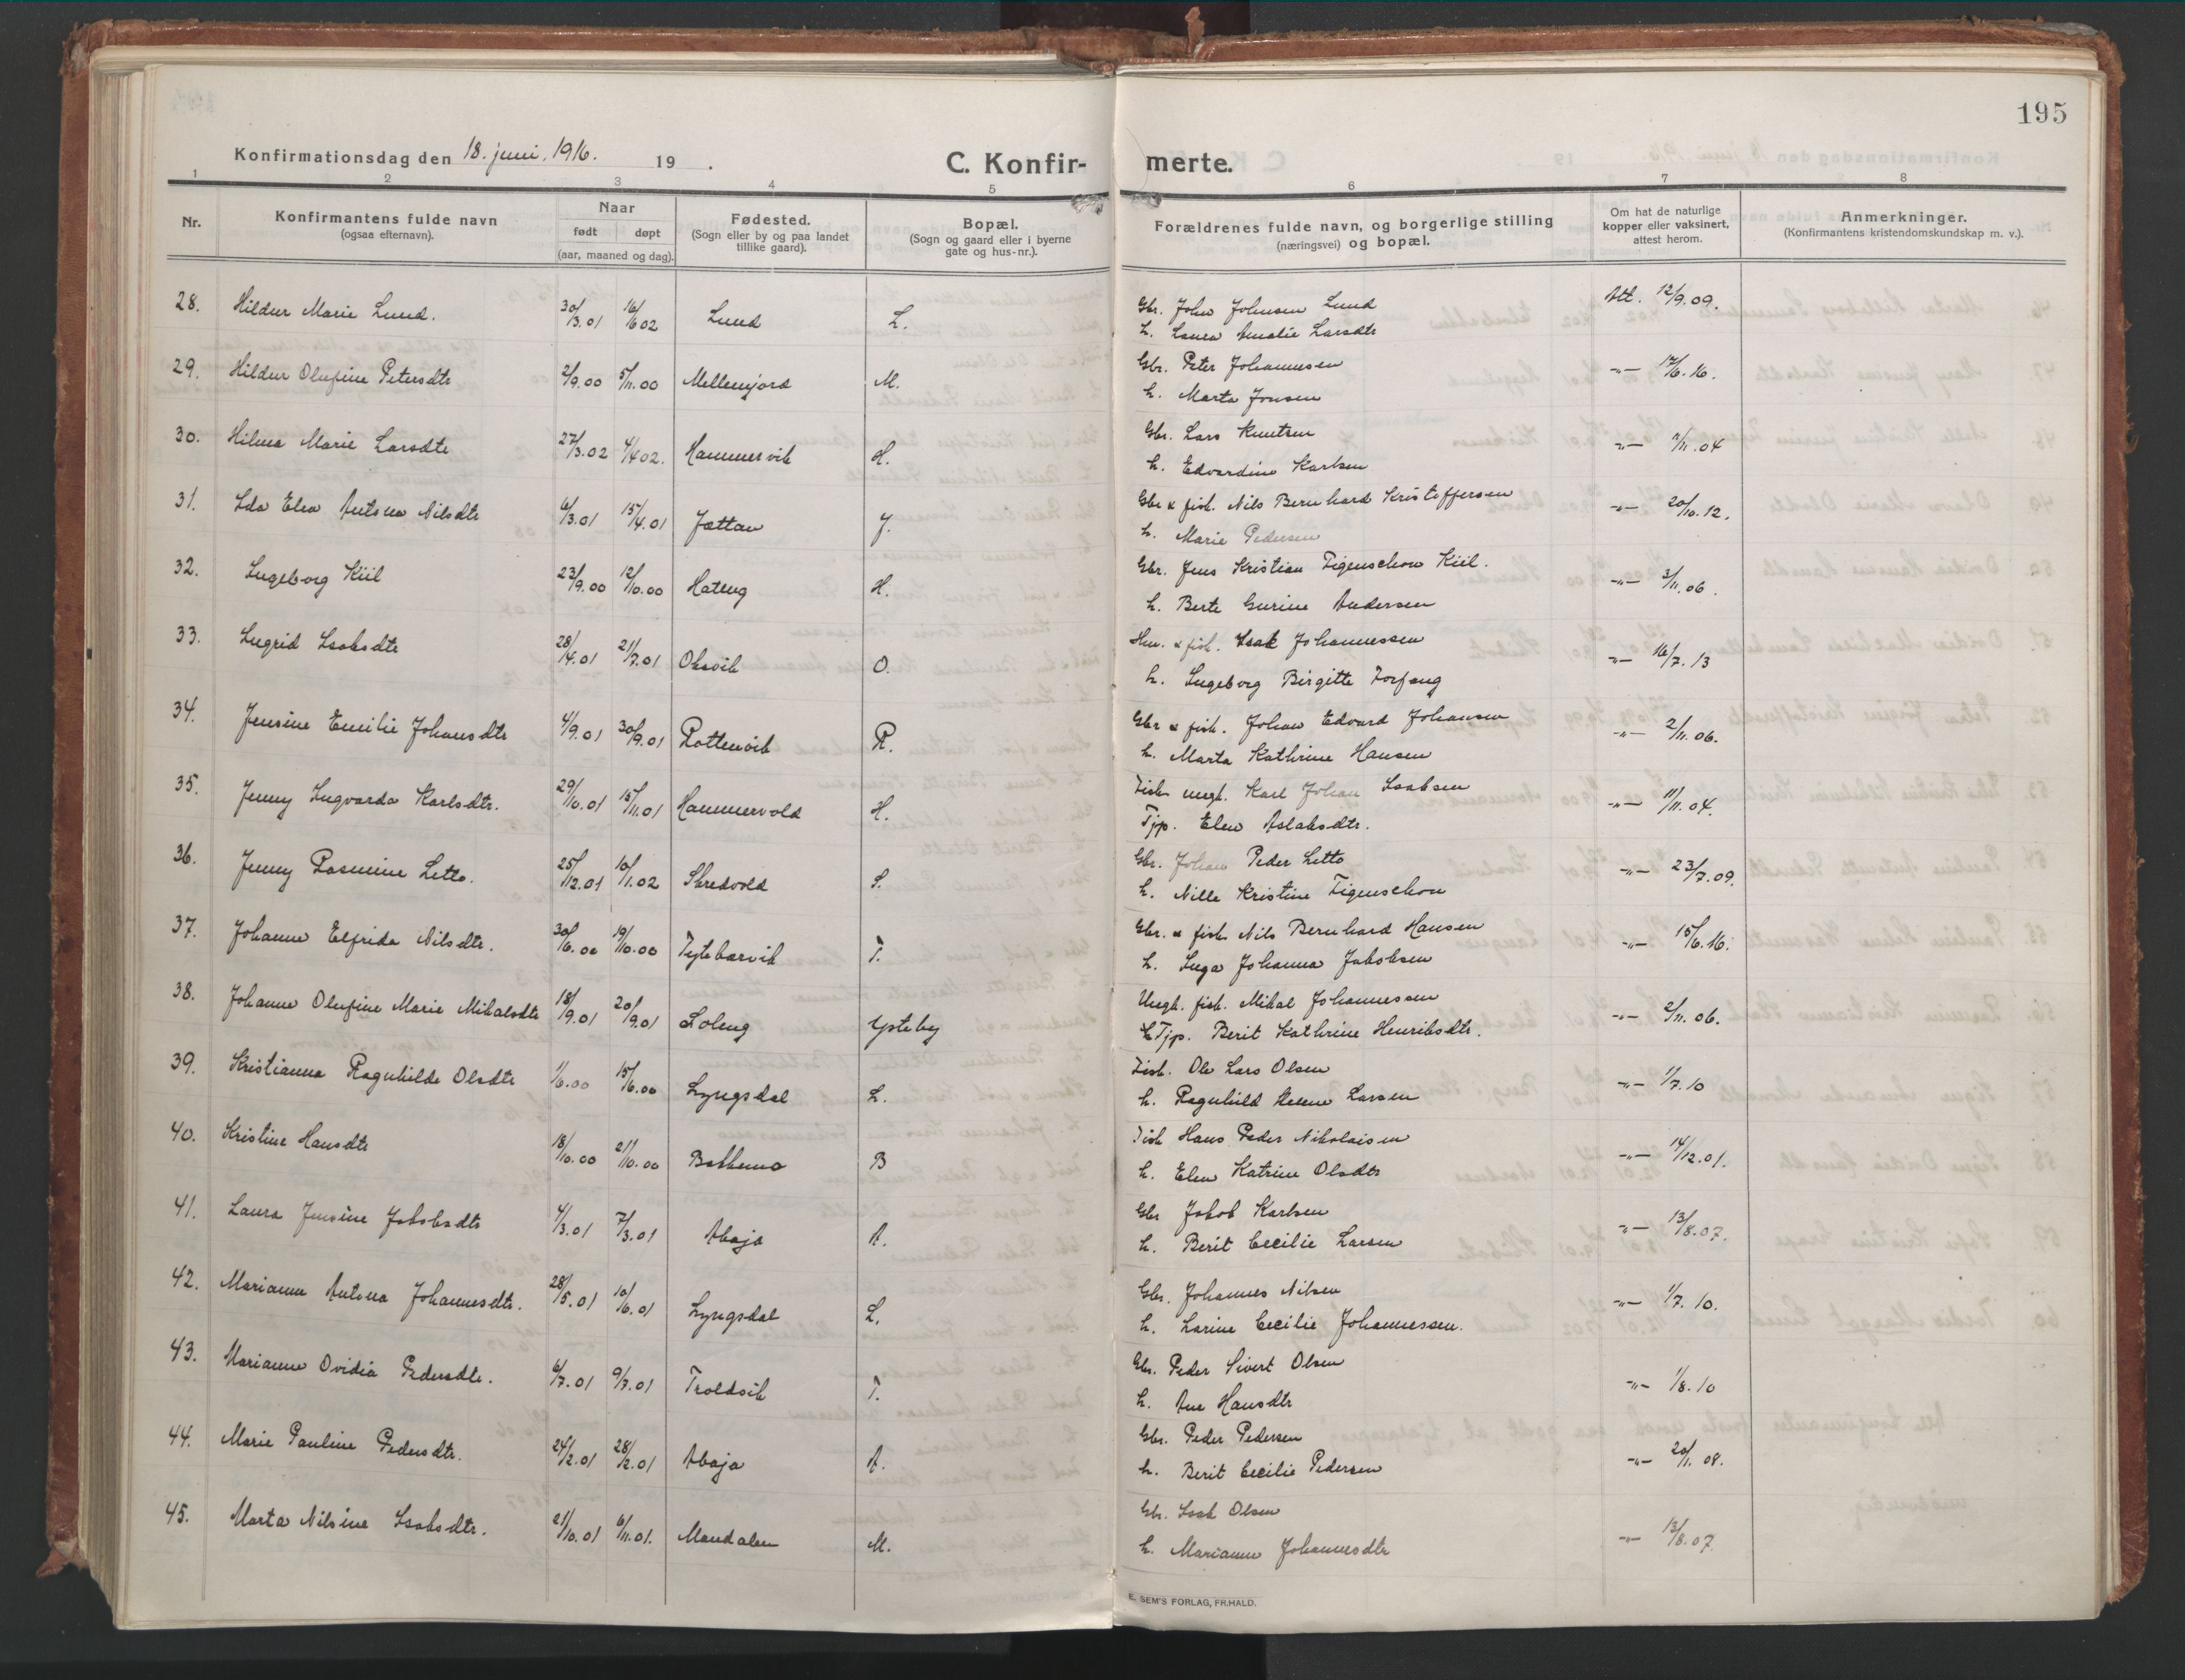 195
Konfirmationsdag den 18. juni. 1916. 19 .
C. Konfirmerte.
1 2 3 4 5 6 7 8
Nr.
Konfirmantens fulde navn (ogsaa efternavn).
Naar født døpt (aar, maaned og dag).
Fødested. (Sogn eller by og paa landet tillike gaard).
Bopæl. (Sogn og gaard eller i byerne gate og hus-nr.).
Forældrenes fulde navn, og borgerlige stilling (næringsvei) og bopæl.
Om hat de naturlige kopper eller vaksinert, attest herom.
Anmerkninger. (Konfirmantens kristendomskundskap m. v.).
28. Hildur Marie Lund. 30/3.01 16/6 02 Lund L. Gbr. John Johnsen Lund Att. 12/9.09.
h. Laura Amalie Larsdtr
29. Hildur Olufine Petersdtr 2/9.00 5/11.00 Mellemjord M. Gbr. Peter Johannesen -"- 17/6.16.
h. Marta Jonsen
30. Hilma Marie Larsdtr 27/3.02 4/4 02. Hammervik H. Gbr. Lars Knutsen -"- 11/11.04
h. Edvardine Karlsen
31. Ida Elea Antona Nilsdtr 6/3.01 15/4.01 Jættan J. Gbr & fisk. Nils Bernhard Kristoffersen -"- 20/10.12.
h. Marie Pedersen
32. Ingeborg Kiil 23/9.00 12/10.00 Hateng H. Gbr. Jens Kristian Figenschou Kiil. -"- 3/11.06.
h. Berte Gurine Andersen
33. Ingrid Isaksdtr 28/4.01 21/7.01 Oksvik O. Hm. & fisk. Isak Johannessen -"- 16/7.13
h. Ingeborg Birgitte Forfang
34. Jensine Emilie Johansdtr 4/9.01 30/9.01 Rottenvik R. Gbr & fisk. Johan Edvard Johansen -"- 2/11.06.
h. Marta Kathrine Hansen
35. Jenny Ingvarda Karlsdtr. 29/10.01 15/11.01 Hammervold H. Fisk ungk. Karl Johan Isaksen -"- 11/11.04.
Tjp. Elen Aslaksdtr.
36. Jenny Rasmine Letto. 25/12.01 10/1.02 Skredvold S. Gbr. Johan Peder Letto -"- 23/7.09.
h. Nille Kristine Figenschou
37. Johanne Elfrida Nilsdtr. 30/6.00 19/10.00 Tytebærvik T. Gbr. & fisk Nils Bernhard Hansen -"- 15/6.16.
h. Inga Johanna Jakobsen
38. Johanne Olufine Marie Mikalsdtr 18/9.01 20/9.01 Løleng Ysteby Ungk. fisk. Mikal Johannessen -"- 2/11.06.
Tjp. Berit Kathrine Henriksdtr.
39. Kristianna Ragnhilda Olsdtr 1/6.00 15/6.00 Lyngsdal L. Fisk. Ole Lars Olsen -"- 1/7.10
h. Ragnhild Helene Larsen
40. Kristine Hansdtr 18/10.00 21/10.00 Bakkemo B Fisk Hans Peder Nikolaisen -"- 14/12.01.
h. Elen Katrine Olsdtr
41. Laura Jensine Jakobsdtr 4/3.01 7/3.01 Abaja A. Gbr Jakob Karlsen -"- 13/8.07.
h. Berit Cecilie Larsen
42. Marianne Antona Johannesdtr. 28/5.01 10/6.01 Lyngsdal L. Gbr. Johannes Nilsen -"- 1/7.10.
h. Larine Cecilie Johannessen.
43. Marianne Ovidia Pedersdtr. 6/7.01 9/7.01 Troldvik T. Gbr. Peder Sivert Olsen -"- 1/8.10
h. Ane Hansdtr
44. Marie Pauline Pedersdtr. 24/2.01 28/2.01 Abaja A. Gbr. Peder Pedersen -"- 20/1.08.
h. Berit Cecilie Pedersen
45. Marta Nilsine Isaksdtr. 21/10.01 6/11.01. Mandalen M. Gbr. Isak Olsen -"- 13/8.07
h. Marianne Johannesdtr
E. SEM'S FORLAG, FR.HALD.